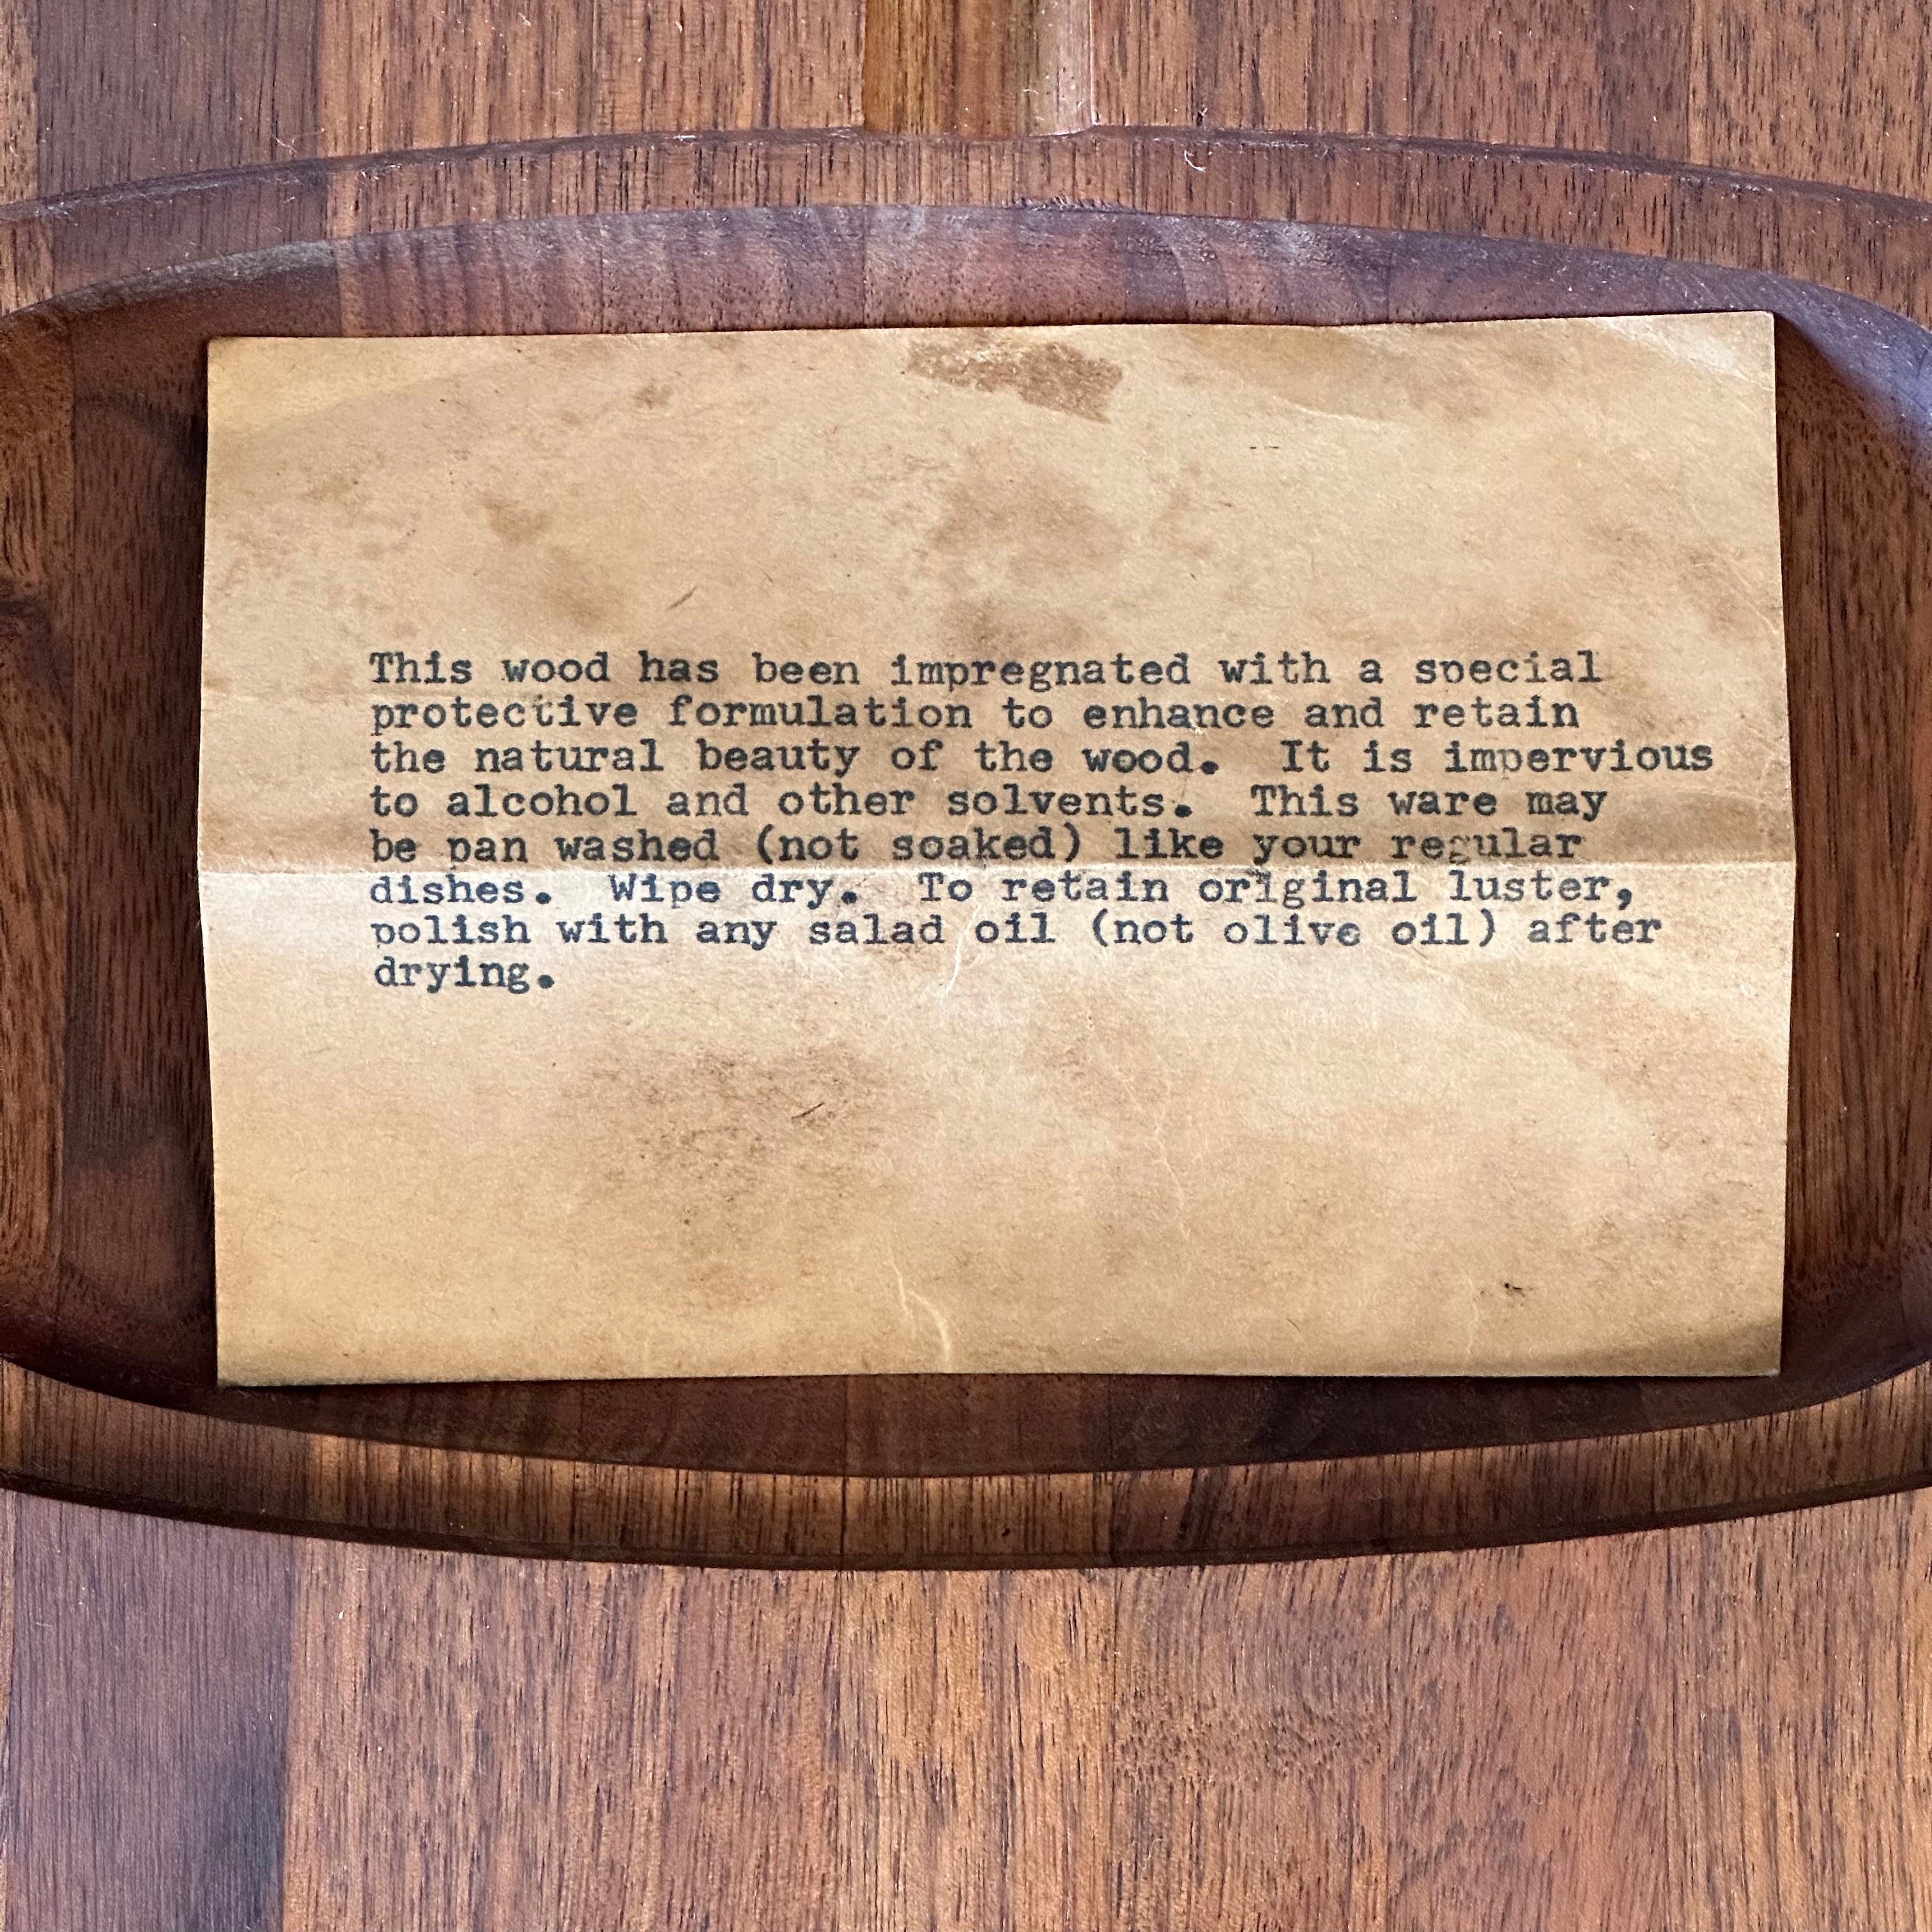 This wood has been impregnated with a special
protective formulation to enhance and retain
the natural beauty of the wood.  It is impervious
to alcohol and other solvents.  This ware may
be pan washed (not soaked) like your regular
dishes.  Wipe dry.  To retain original luster,
polish with any salad oil (not olive oil) after
drying.